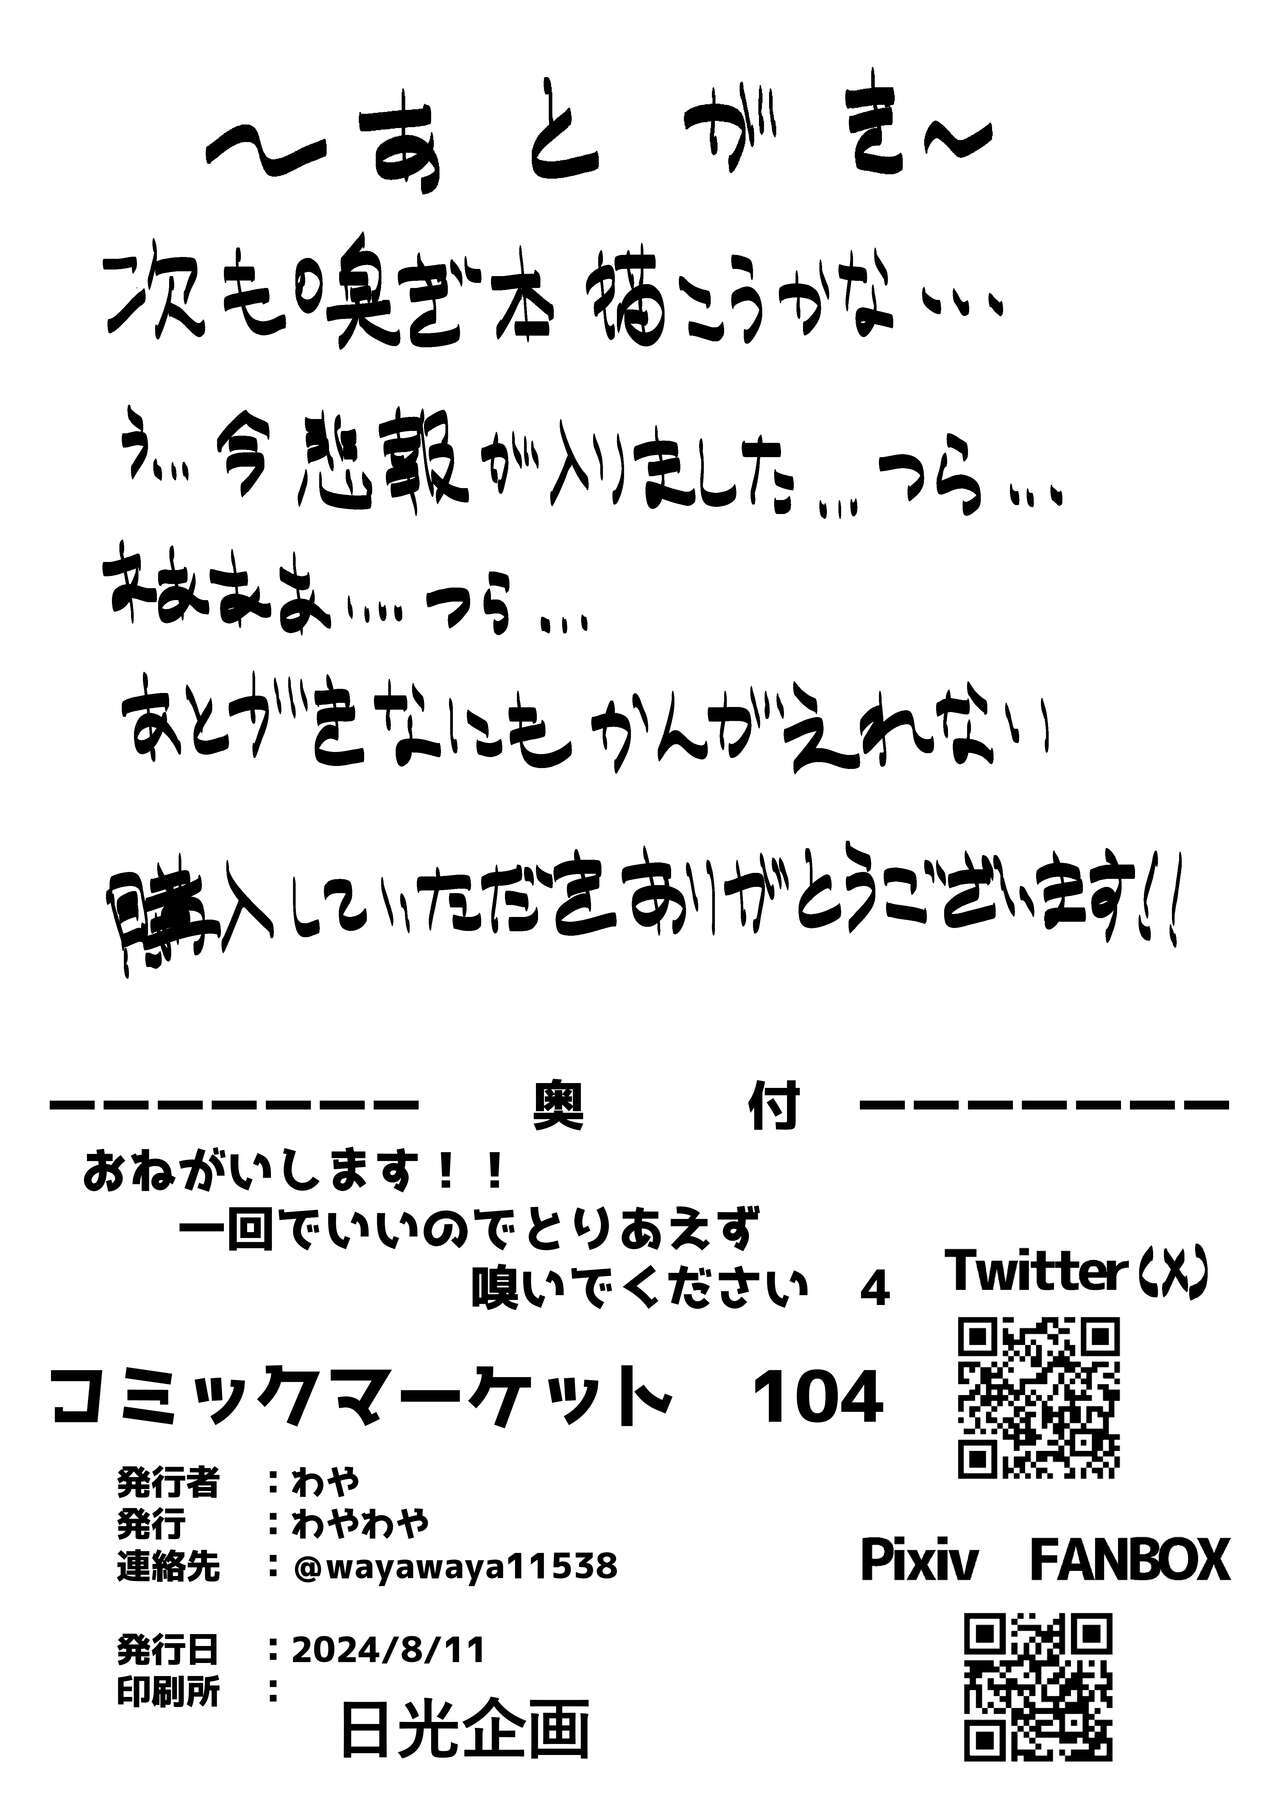 ～あとがき～
次も嗅ぎ本描こうかな...
う...今悲報が入りました...つら...
あとがきなにもかんがえれない
購入していただきありがとうございます!!
ーーーーーーー 奥 付 ーーーーーーー
おねがいします！！
一回でいいのでとりあえず
嗅いでください 4
Twitter(X)
コミックマーケット 104
発行者 ：わや
発行 ：わやわや
連絡先 ：@wayawaya11538
Pixiv FANBOX
発行日 ：2024/8/11
印刷所 ：
日光企画